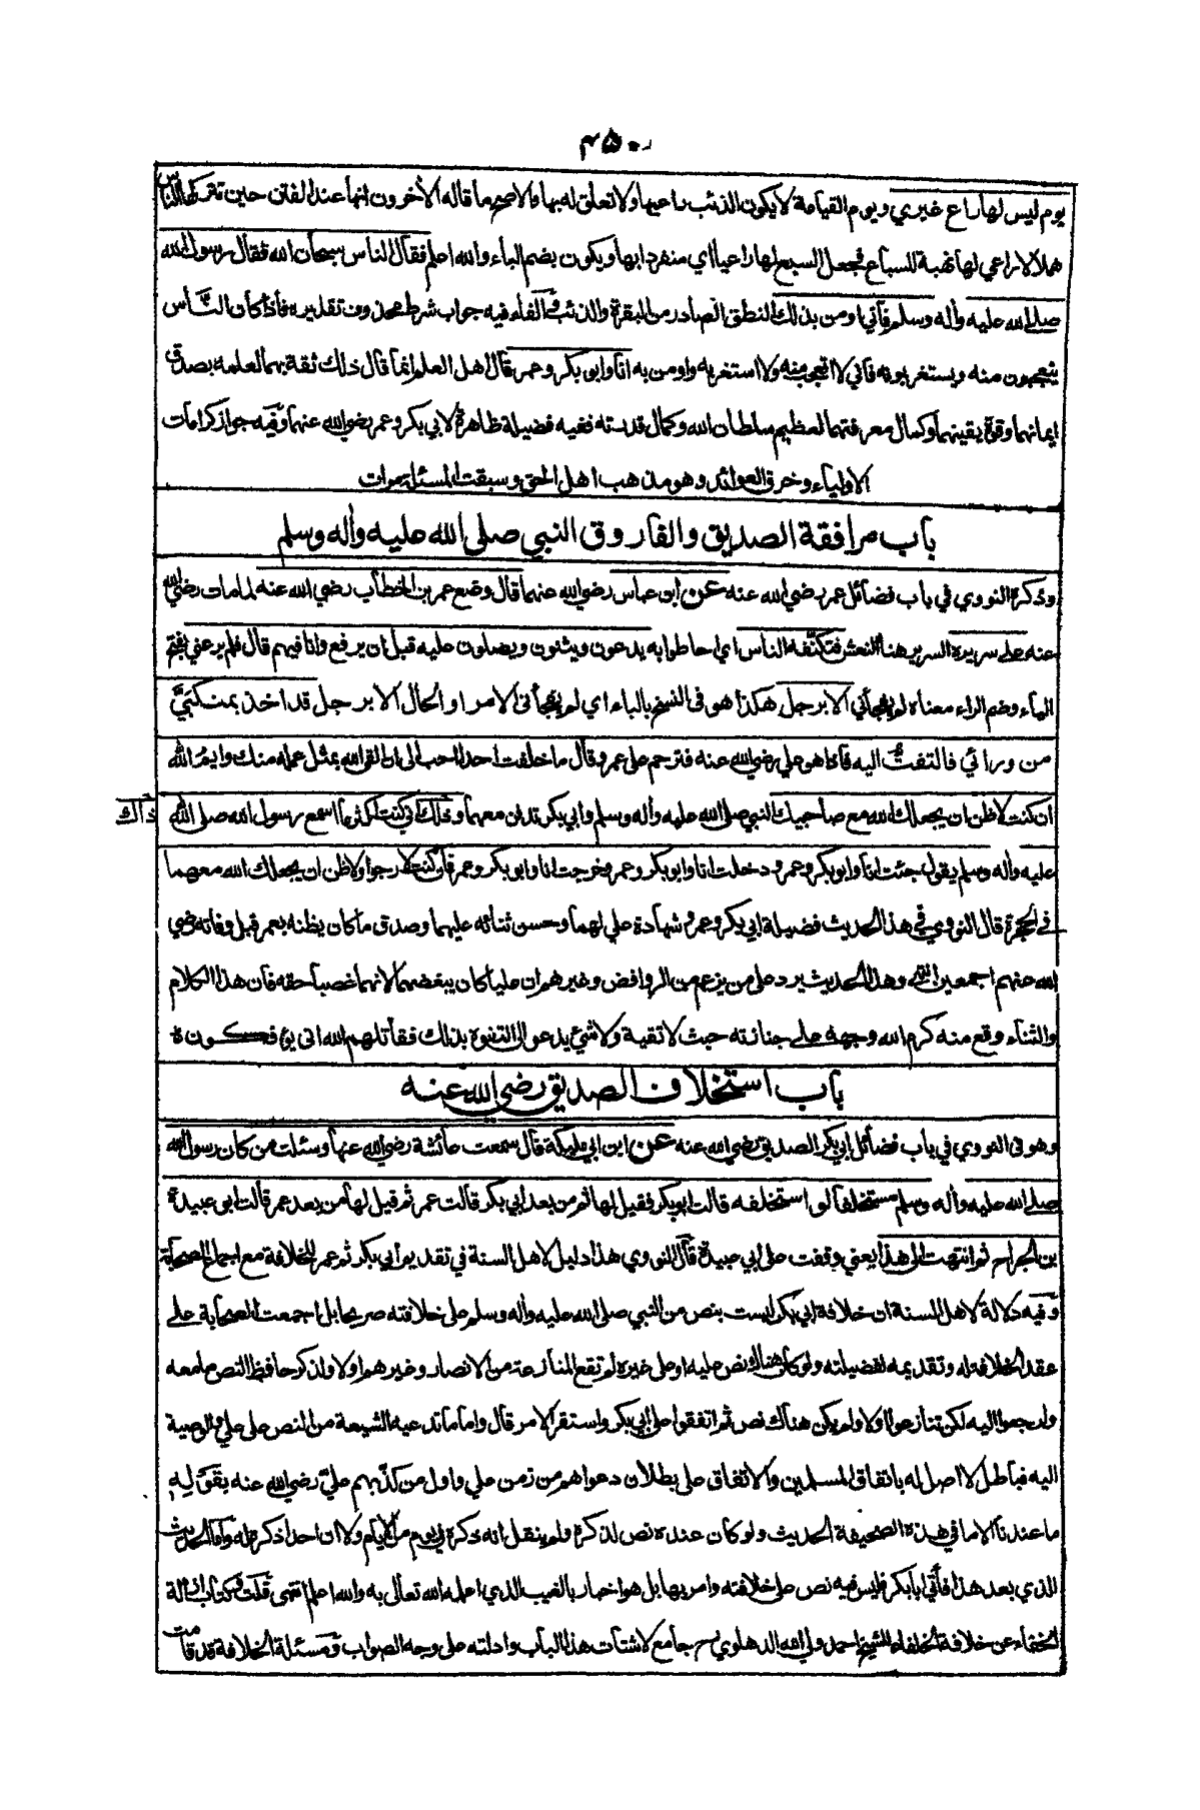 ٤٥٠
يوم ليس لها راع غيري ويوم القيامة لا يكون الذئب راعيها ولا تعلق له بها والاصح ما قاله الأخرون انها عند الفتن حين تتركها الناس
هملا لا راعي لها نهبة للسباع فجعل السبع لها راعيا اي منفردا بها ويكون بضم الباء والله اعلم فقال الناس سبحان الله فقال رسول الله
صلى الله عليه وأله وسلم فاني اومن بذلك النطق الصادر من البقرة والذئب الفاء فيه جواب شرط محذوف تقديره فاذا كان الناس
يتعجبون منه ويستغربونه فاني لا اتعجب منه ولا استغربه واومن به انا وابو بكر وعمر قال اهل العلم انما قال ذلك ثقة بهما لعلمه بصدق
ايمانهما وقوة يقينهما وكمال معرفتهما لعظيم سلطان الله وكمال قدرته ففيه فضيلة ظاهرة لابي بكر وعمر رضي الله عنهما وفيه جواز كرامات
الاولياء وخرق العوائد وهو مذهب اهل الحق وسبقت المسئلة مرات
باب مرافقة الصديق والفاروق النبي صلى الله عليه وأله وسلم
وذكره النووي في باب فضائل عمر رضي الله عنه عن ابن عباس رضي الله عنهما قال وضع عمر بن الخطاب رضي الله عنه لما مات رضي الله
عنه على سريره السرير هنا النعش فتكنّفه الناس اي احاطوا به يدعون ويثنون ويصلون عليه قبل ان يرفع وانا فيهم قال فلم يرعني بفتح
الياء وضم الراء معناه لم يفجأني الا برجل هكذا هو في النسخ بالباء اي لم يفجأني الامر او الحال الا برجل قد اخذ بمنكبيَّ
من ورائي فالتفتُّ اليه فاذا هو علي رضي الله عنه فترحم على عمر وقال ما خلفت احدا احب الي ان القى الله بمثل عمله منك وايمُ الله
ان كنت لاظن ان يجعلك الله مع صاحبيك النبي صلى الله عليه وأله وسلم وابي بكر تدفن معهما وذلك اني كنت اكثر ما اسمع رسول الله صلى الله
ذاك
عليه وأله وسلم يقول جئت انا وابو بكر وعمر ودخلت انا وابو بكر وعمر وخرجت انا وابو بكر وعمر فان كنت لارجوا ولاظن ان يجعلك الله معهما
في الحجرة قال النووي في هذا الحديث فضيلة ابي بكر وعمر وشهادة علي لهما وحسن ثنائه عليهما وصدق ما كان يظنه بعمر قبل وفاته رضي
الله عنهم اجمعين انتهى وهذا الحديث يرد على من يزعم من الروافض وغيرهم ان عليا كان يبغضهما لانهما غصبا حقه فان هذا الكلام
والثناء وقع منه كرم الله وجهه على جنازته حيث لا تقية ولا شيئ يدعو الى التفوه بذلك فقاتلهم الله انى يؤفكون ه
باب استخلاف الصديق رضي الله عنه
وهو في النووي في باب فضائل ابي بكر الصديق رضي الله عنه عن ابن ابي مليكة قال سمعت عائشة رضي الله عنها وسئلت من كان رسول الله
صلى الله عليه وأله وسلم مستخلفا لو استخلفه قالت ابو بكر فقيل لها ثم من بعد ابي بكر قالت عمر ثم قيل لها من بعد عمر قالت ابو عبيدة
بن الجراح ثم انتهت الى هذا يعني وقفت على ابي عبيدة قال النووي هذا دليل لاهل السنة في تقديم ابي بكر ثم عمر للخلافة مع اجماع الصحابة
وفيه دلالة لاهل السنة ان خلافة ابي بكر ليست بنص من النبي صلى الله عليه وأله وسلم على خلافته صريحا بل اجمعت الصحابة على
عقد الخلافة له وتقديمه لفضيلته ولو كان هناك نص عليه او على غيره لم تقع المنازعة من الانصار وغيرهم اولا ولذكر حافظ النص ما معه
ولرجعوا اليه لكن تنازعوا اولا ولم يكن هناك نص ثم اتفقوا على ابي بكر واستقر الامر قال واما ما تدعيه الشيعة من النص على علي والوصية
اليه فباطل لا اصل له باتفاق المسلمين والاتفاق على بطلان دعواهم من زمن علي واول من كذّبهم عليّ رضي الله عنه بقوَّلِهِ
ما عندنا الا ما في هذه الصحيفة الحديث ولو كان عنده نص لذكره ولم ينقل انه ذكره في يوم من الايام ولا ان احدا ذكره له واما الحديث
الذي بعد هذا فأتي ابا بكر فليس فيه نص على خلافته وامر بها بل هو اخبار بالغيب الذي اعلمه الله تعالى به والله اعلم انتهى قلت وكتاب ازالة
الخفاء عن خلافة الخلفاء للشيخ احمد ولي الله الدهلوي رح جامع لاشتات هذا الباب وادلته على وجه الصواب ومسئلة الخلافة قد قامت